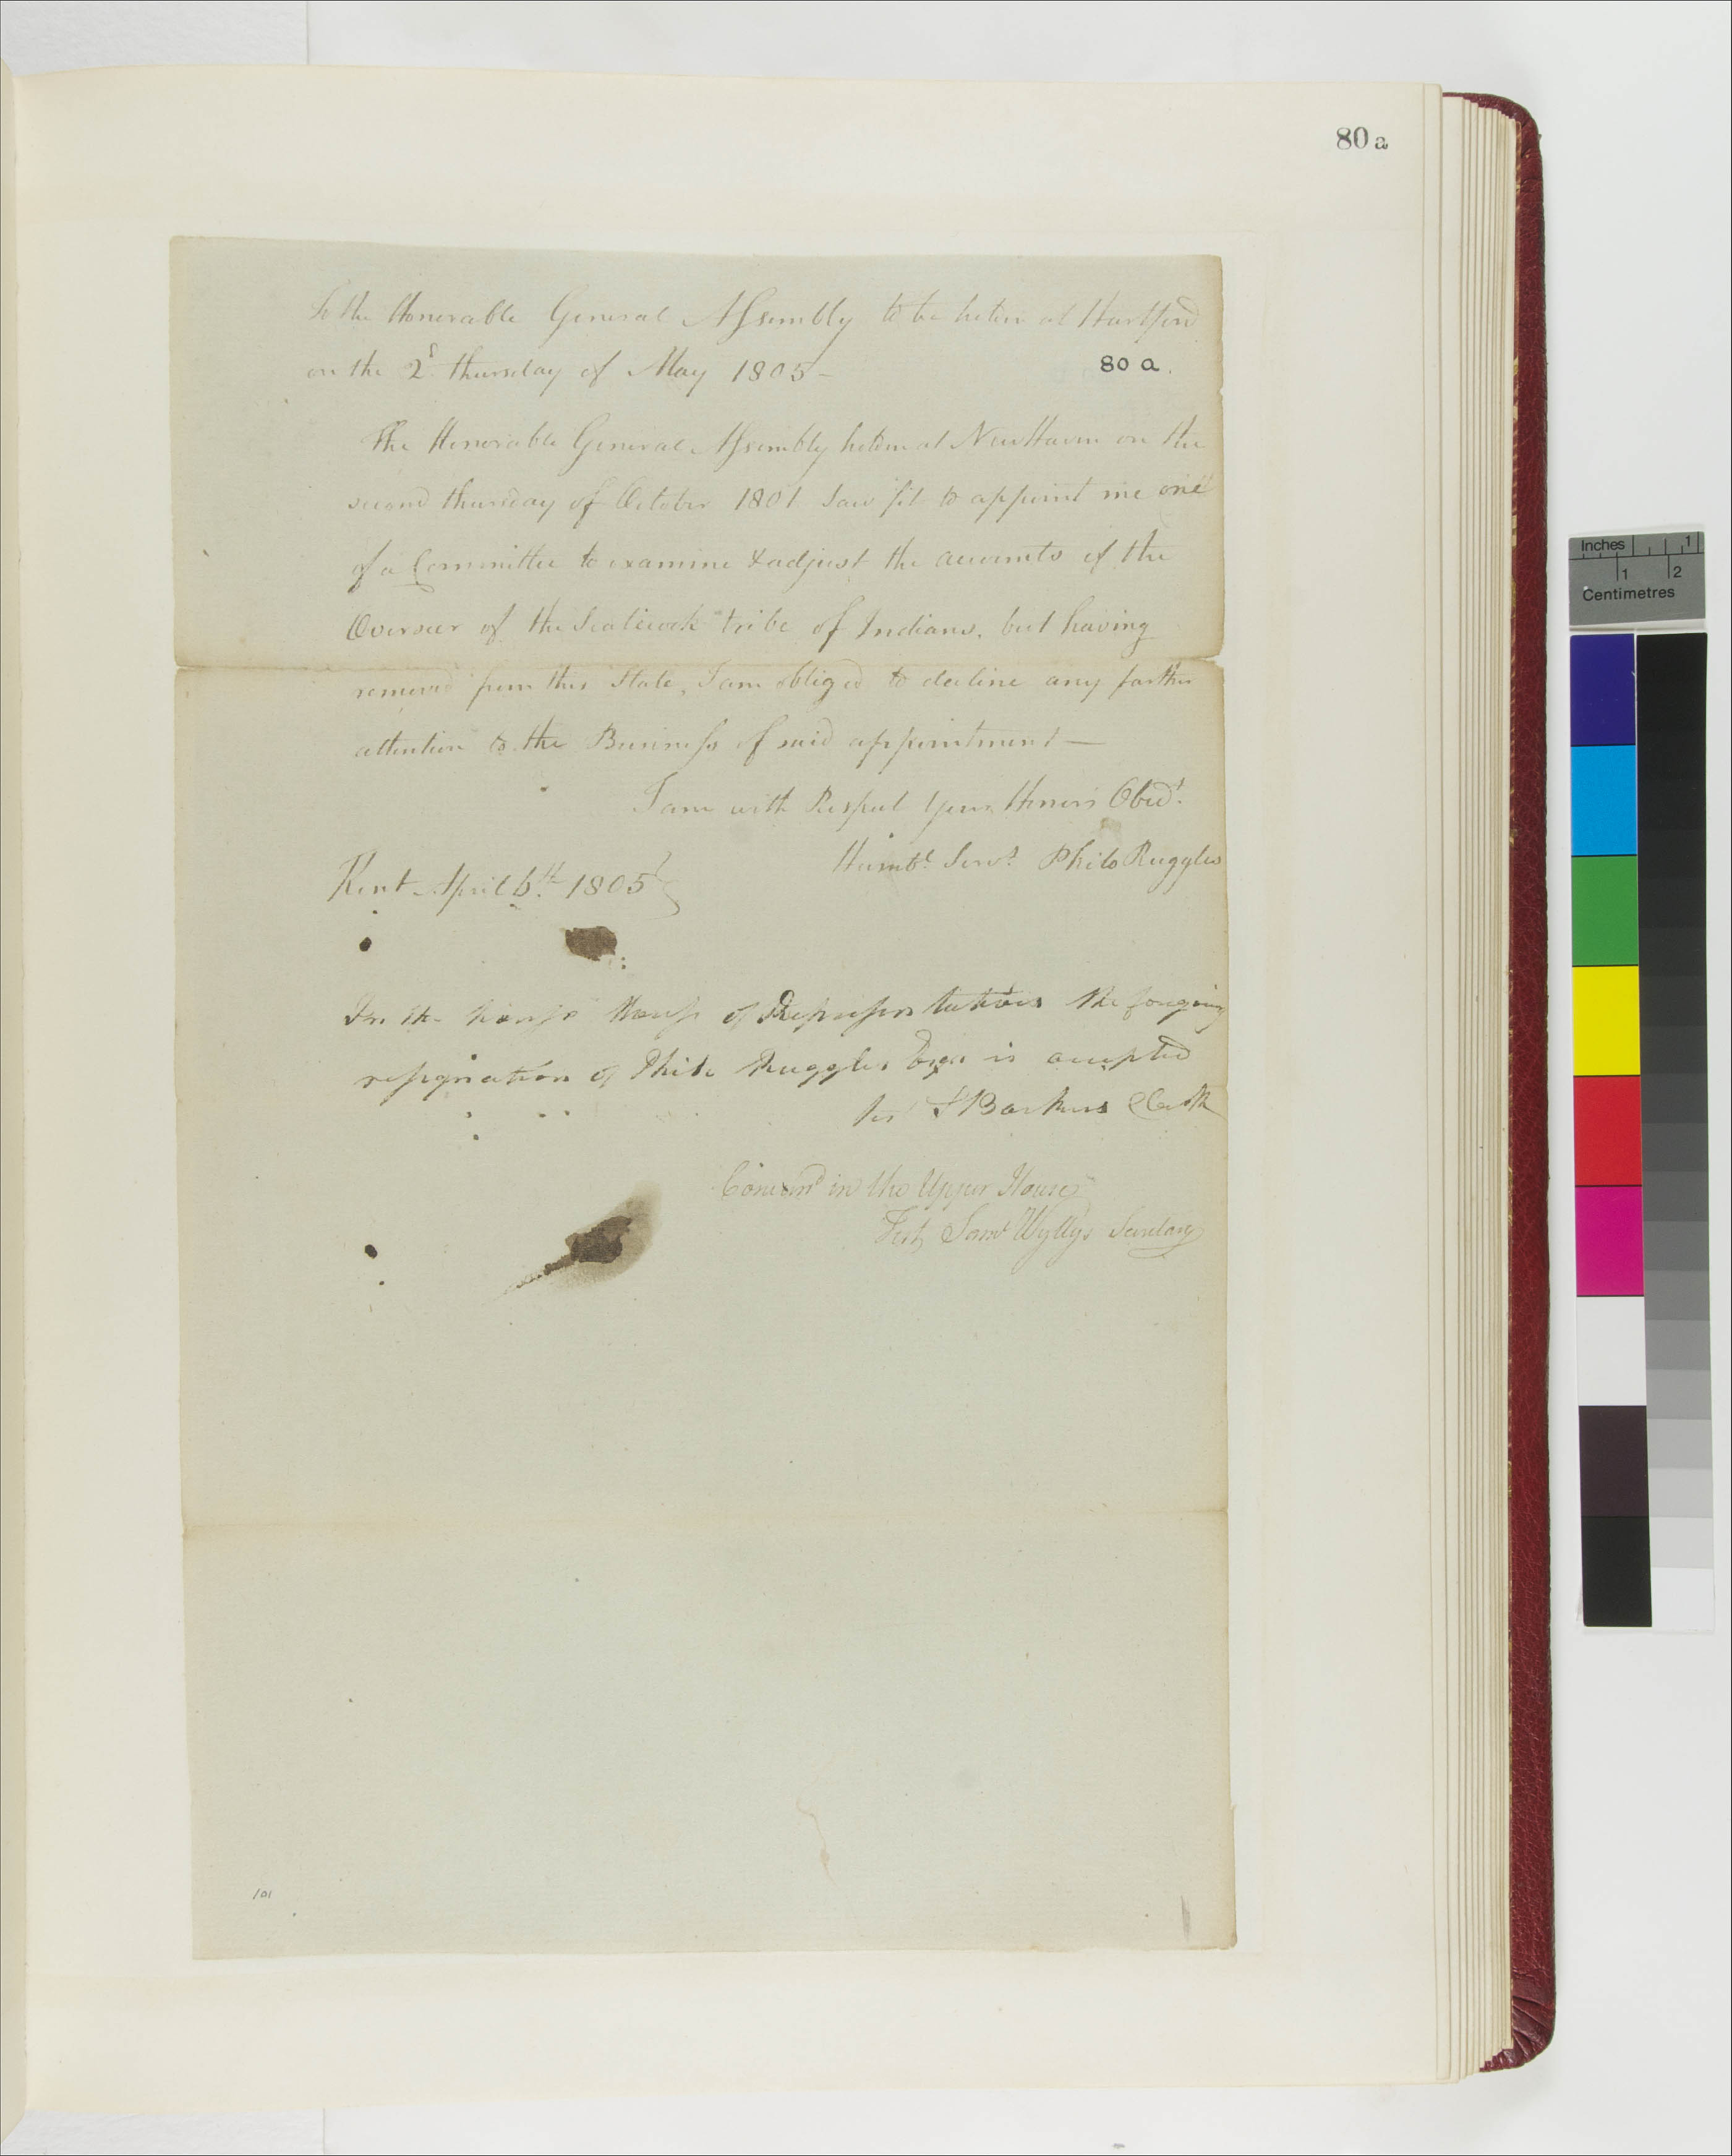 80 a
To the Honorable General Assembly to be holden at Hartford
on the 2d thursday of May 1805 -
80 a.
The Honorable General Assembly holden at New Haven on the
second thursday of October 1801 saw fit to appoint me one
of a Committee to examine & adjust the accounts of the
Overseer of the Scaticook tribe of Indians, but having
removed from this State, I am obliged to decline any farther
attention to the Business of said appointment —
I am with Respect Your Honors Obedt.
Humbl. Servt. Philo Ruggles
Kent April 6th. 1805
In the house House of Representatives the forgoing
resignation of Philo Ruggles Esqr is accepted
Clerk
Concurrd in the Upper House
Test, Saml Wyllys Secretary
101
Inches 1
1 2
Centimetres